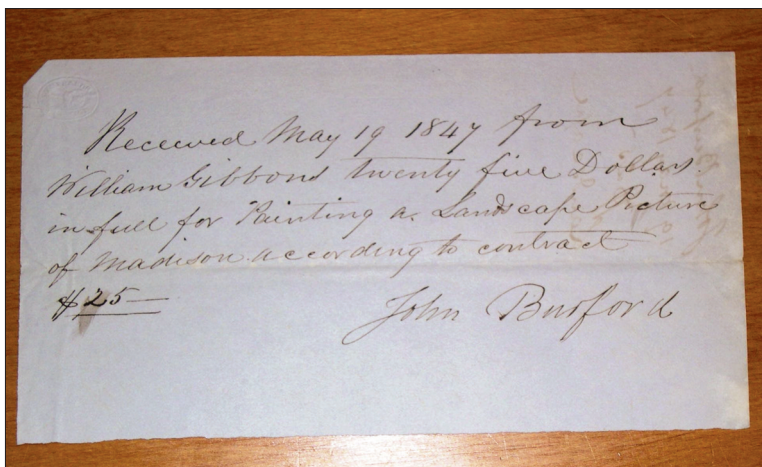 Received May 19 1847 from
William Gibbons twenty five Dollars.
in full for Painting a Landscape Picture
of Madison according to contract
$25—
John Burford